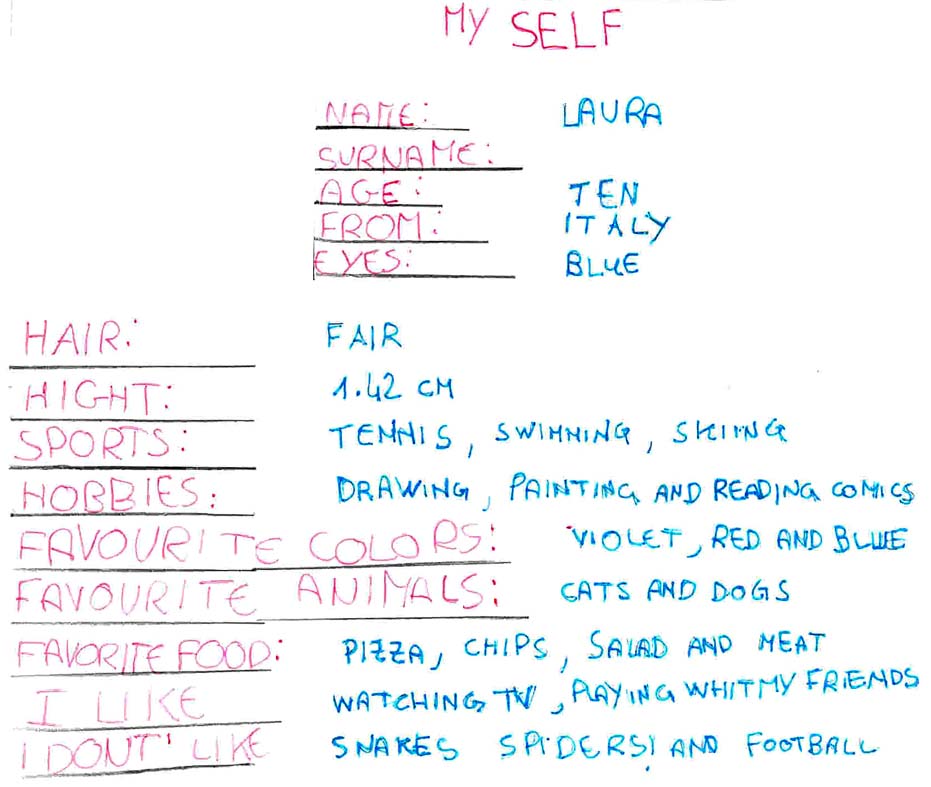 MY SELF
NAME: LAURA
SURNAME:
AGE: TEN
FROM: ITALY
EYES: BLUE
HAIR: FAIR
HIGHT: 1.42 CM
SPORTS: TENNIS, SWIMNING, SKIING
HOBBIES: DRAWING, PAINTING AND READING COMICS
FAVOURITE COLORS: VIOLET, RED AND BLUE
FAVOURITE ANIMALS: CATS AND DOGS
FAVORITE FOOD: PIZZA, CHIPS, SALAD AND MEAT
I LIKE WATCHING TV, PLAYING WHIT MY FRIENDS
I DONT' LIKE SNAKES SPIDERS! AND FOOTBALL